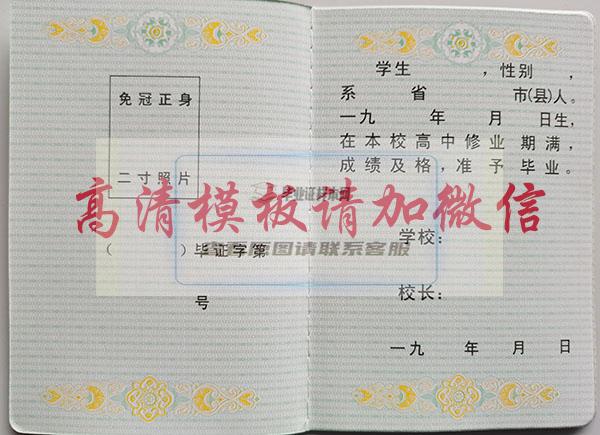 免冠正身
二寸照片
( )毕证字第
号
学生 ,性别 ,
系 省 市(县)人。
一九 年 月 日生,
在本校高中修业 期满,
成绩及格,准予 毕业。
学校:
校长:
一九 年 月 日
高清模板请加微信
图请联系客服